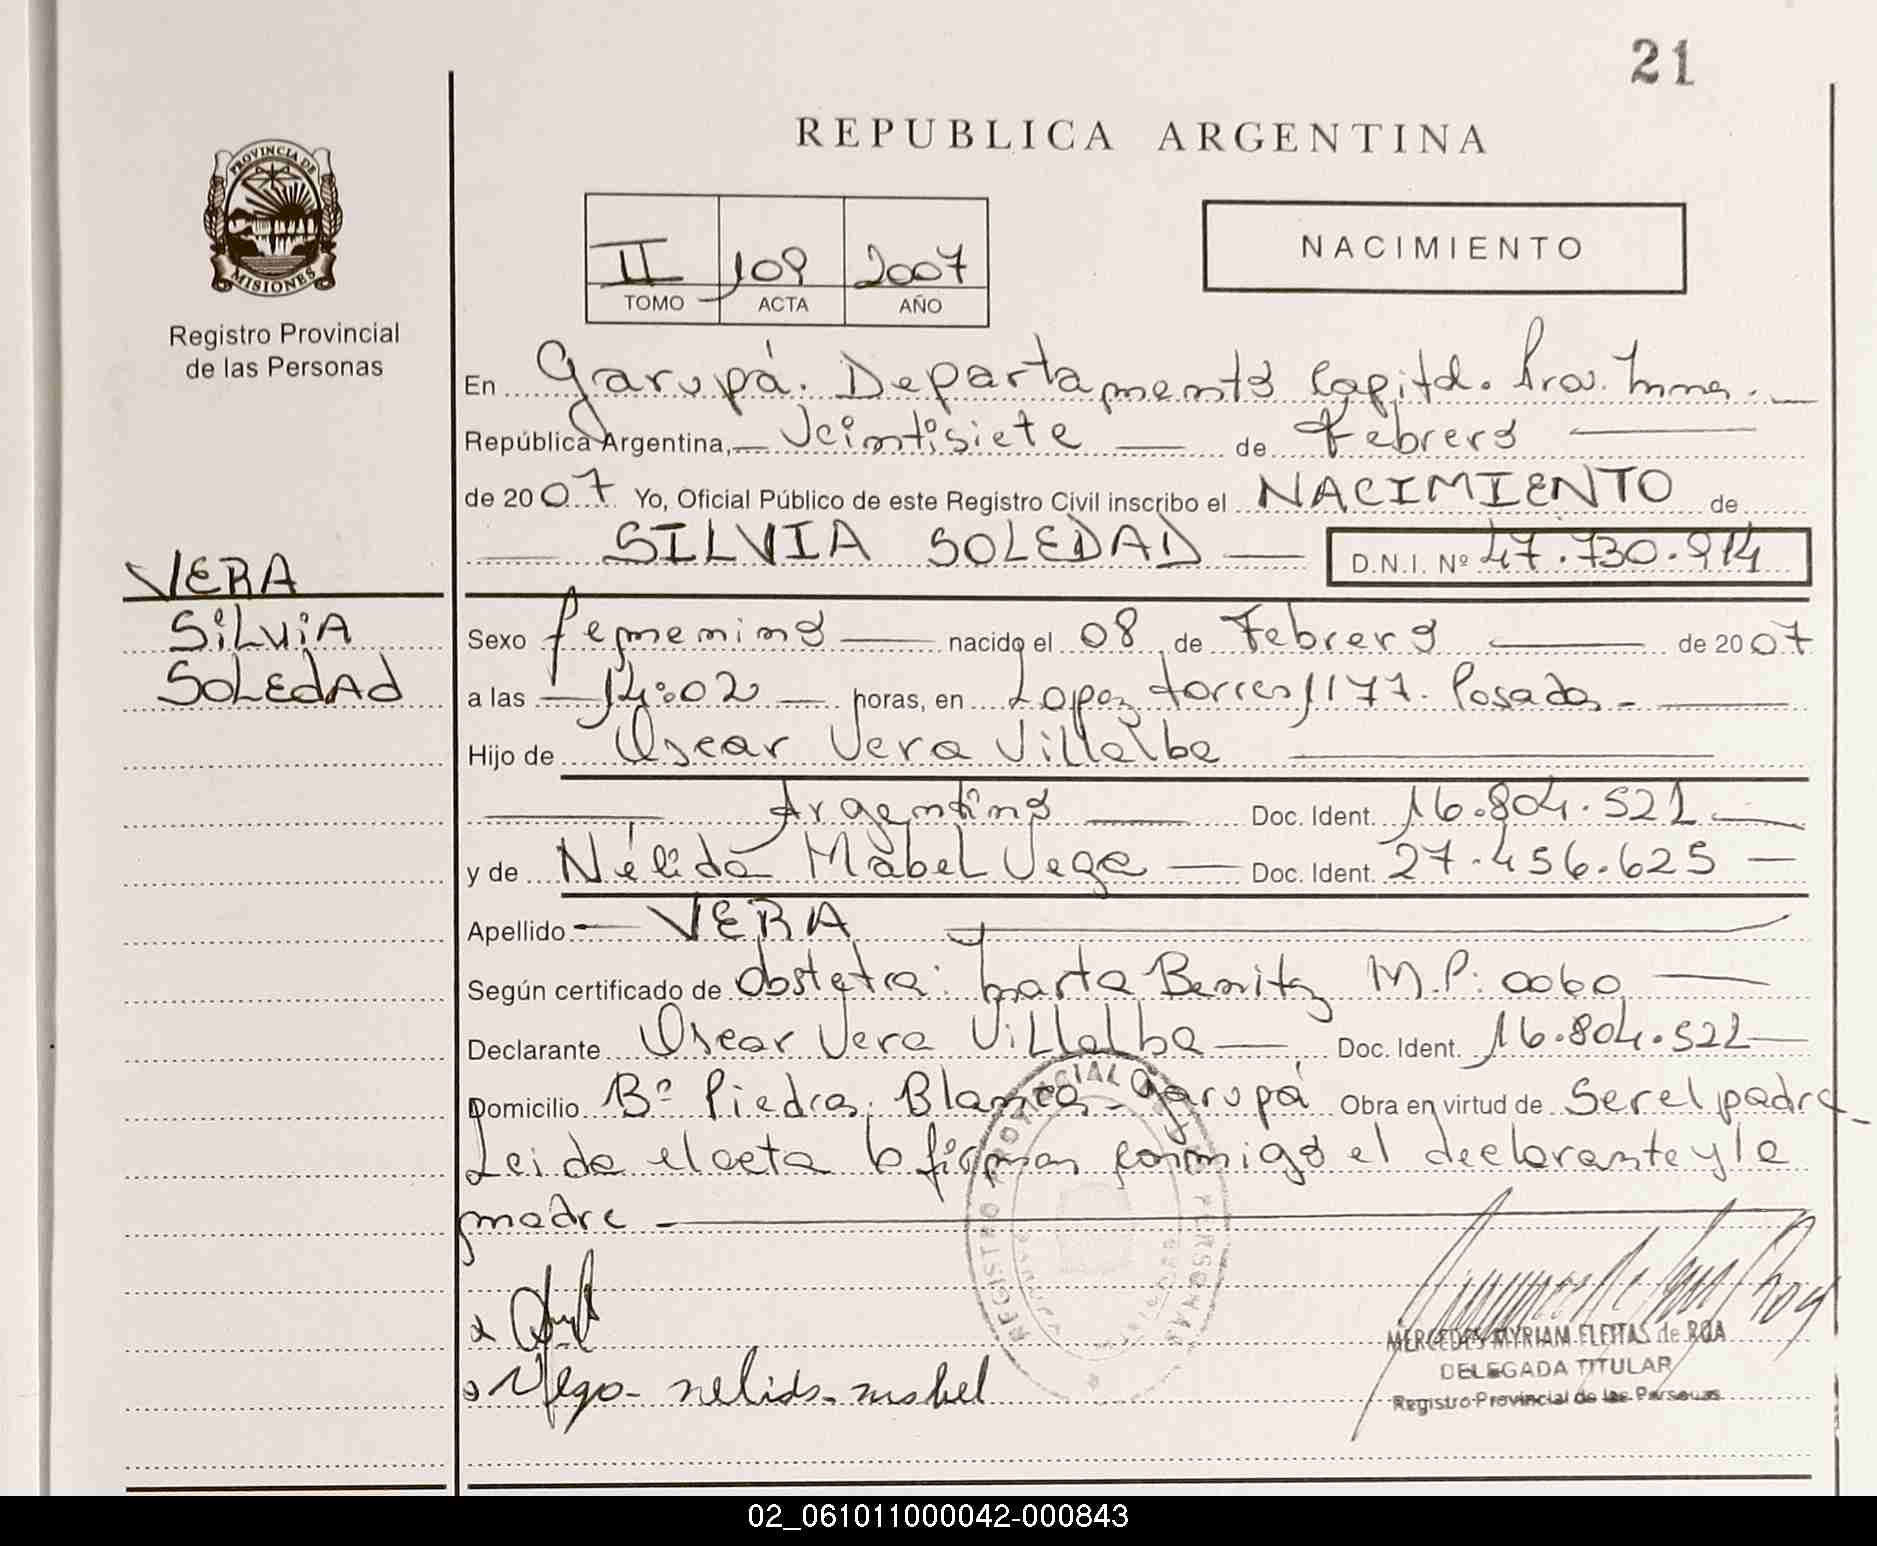 21
REPUBLICA ARGENTINA
PROVINCIA DE
MISIONES
Registro Provincial
de las Personas
II 109 2007
TOMO ACTA AÑO
NACIMIENTO
En Garupá. Departamento Capital. Prov. Mnes.
República Argentina, Veintisiete de Febrero
de 2007 Yo, Oficial Público de este Registro Civil inscribo el NACIMIENTO de
SILVIA SOLEDAD D.N.I. Nº 47.730.914
VERA
SiLviA
SoLEdAd
Sexo femenino nacido el 08 de Febrero de 2007
a las 14:02 horas, en Lopez torres 1177. Posadas
Hijo de Oscar Vera Villalba
Argentino Doc. Ident. 16.804.521
y de Nélida Mabel Vega Doc. Ident. 27.456.625
Apellido VERA
Según certificado de Obstetra: Marta Benitz M.P: 0060
Declarante Oscar Vera Villalba Doc. Ident. 16.804.521
Domicilio Bº Piedras Blancas Garupá Obra en virtud de Ser el padre
Leida el acta la firman conmigo el declarante y la
madre
REGISTRO PROVINCIAL PERSONAS
Vega nelida mabel
MERCEDES MYRIAM FLEITAS de ROA
DELEGADA TITULAR
Registro Provincial de las Personas
02_061011000042-000843